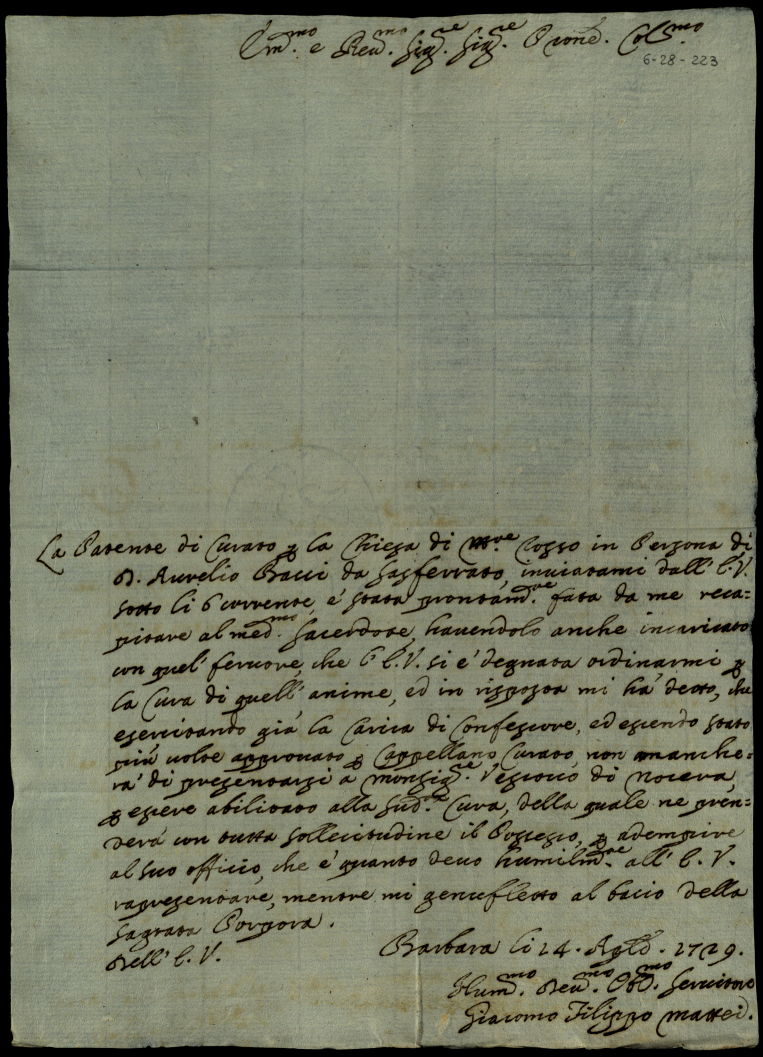 Em.mo e Reu.mo Sig.re Sig.re P.rone Col.mo
6-28-223
La Patente di Curato p la Chiesa di m.te Rosso in Persona di
D. Aurelio Bacci da Sasferrato, inuiatami dall' E.V.
sotto li 6 corrente, è stata prontam.te fata da me reca=
pitare al med.mo Sacerdote, hauendolo anche incaricato
con quel' feruore, che l' E.V. si è degnata ordinarmi p
la Cura di quell' anime, ed in risposta mi hà detto, che
esercitando già la Carica di Confessore, ed essendo stato
più volte approuato p Cappellano Curato, non manche=
rà di presentarsi à Monsig.re Vescouo di Nocera,
p essere abilitato alla sud.a Cura, della quale ne pren=
derà con tutta sollecitudine il Possesso, p adempire
al suo officio, che è quanto deuo humilm.te all' E.V.
rapresentare, mentre mi genufletto al bacio della
Sagrata Porpora.
Dell' E.V.
Barbara li 24. Ag.to 1729.
Hum.mo Deu.mo Obl.mo Seruitore
Giacomo Filippo Mattei.